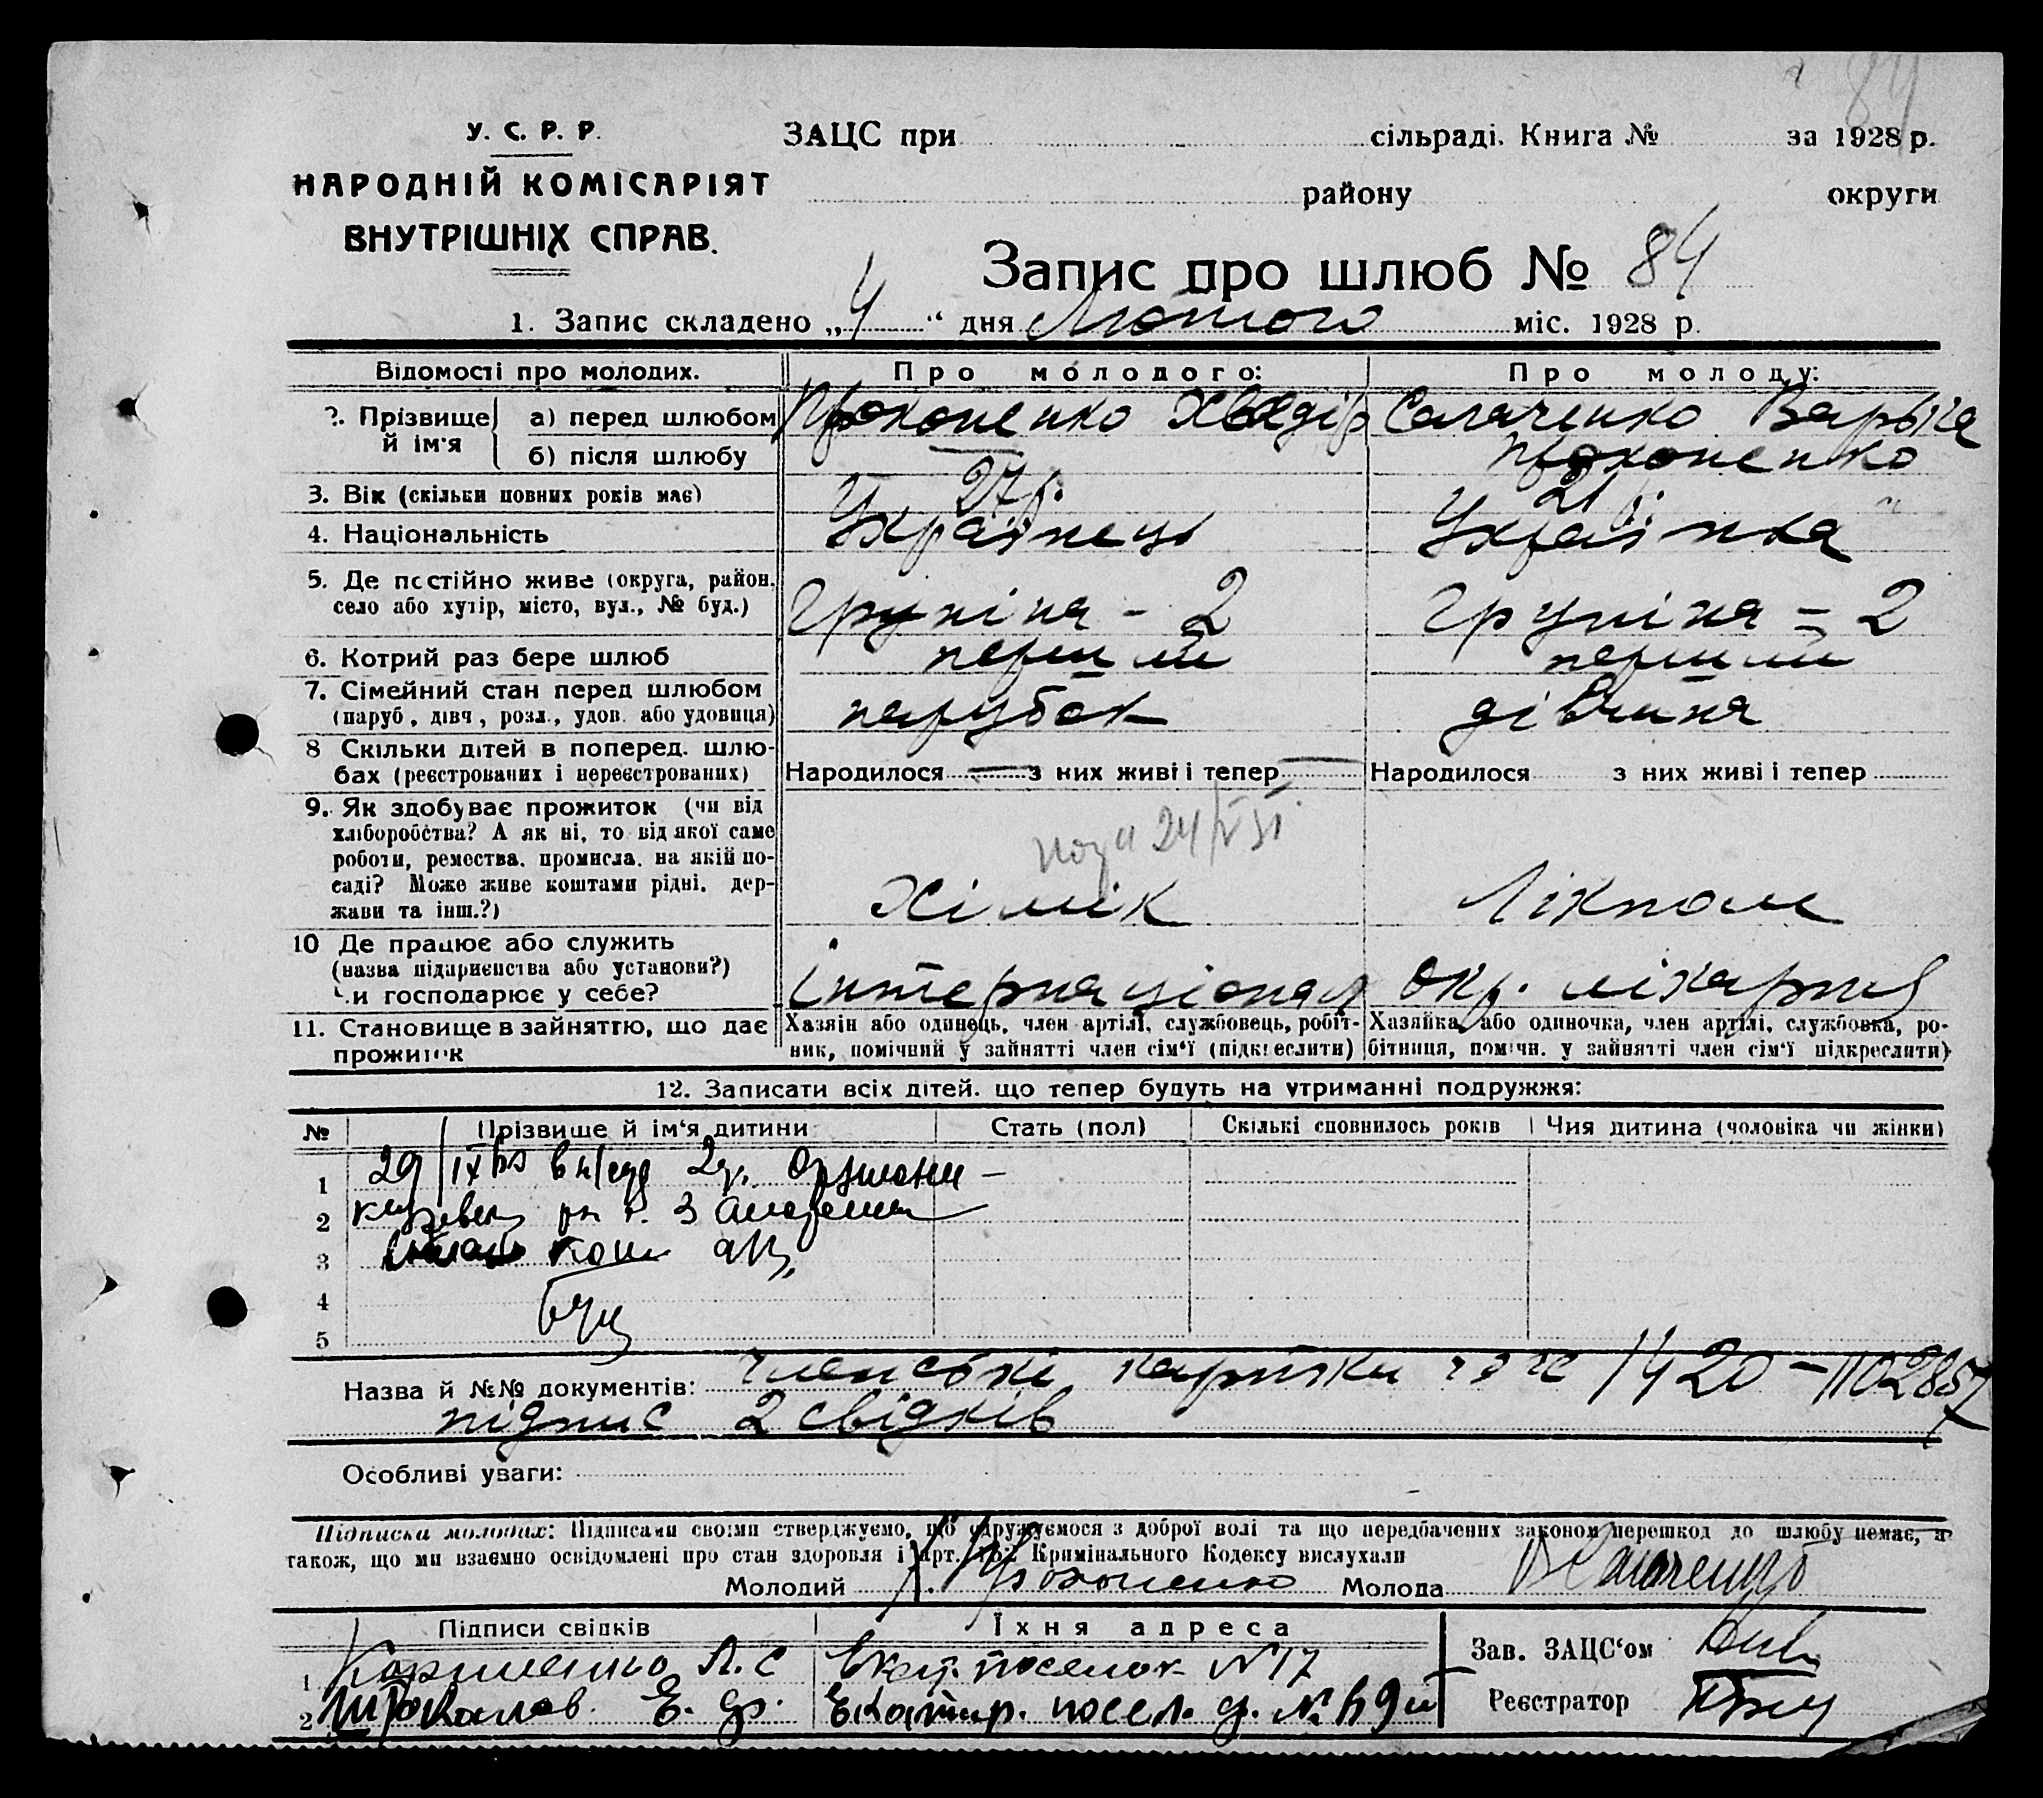 84
У. С. Р. Р.
НАРОДНІЙ КОМІСАРІЯТ
ВНУТРІШНІХ СПРАВ.
ЗАЦС при сільраді. Книга № за 1928 р.
району округи
Запис про шлюб № 84
1. Запис складено „4“ дня Лютого міс. 1928 р.
Відомості про молодих. Про молодого: Про молоду:
2. Прізвище й ім'я а) перед шлюбом Прокопенко Хведір Салаченко Варвара
б) після шлюбу — Прокопенко
3. Вік (скільки повних років має) 27 р. 21 р.
4. Національність Українець Українка
5. Де постійно живе (округа, район, село або хутір, місто, вул., № буд.) Групіна - 2 Групіна = 2
6. Котрий раз бере шлюб перший перший
7. Сімейний стан перед шлюбом (паруб., дівч., розл., удов. або удовиця) парубок дівчина
8 Скільки дітей в поперед. шлюбах (реєстрованих і нереєстрованих) Народилося — з них живі і тепер — Народилося з них живі і тепер
9. Як здобуває прожиток (чи від хліборобства? А як ні, то від якої саме роботи, ремества, промисла, на якій посаді? Може живе коштами рідні, держави та інш.?) Хімік Лікпом
10 Де працює або служить (назва підприємства або установи?) Чи господарює у себе? Інтернаціонал Окр. лікарня
11. Становище в зайняттю, що дає прожиток Хазяін або одинець, член артілі, службовець, робітник, помічний у зайнятті член сім'ї (підкреслити) Хазяйка, або одиночка, член артілі, службовка, робітниця, помічн. у зайнятті член сім'ї підкреслити)
12. Записати всіх дітей, що тепер будуть на утриманні подружжя:
№ Прізвище й ім'я дитини Стать (пол) Скількі сповнилось років Чия дитина (чоловіка чи жінки)
1 29/IX
2
3
4
5
Назва й №№ документів: членські картки 1420 — 1102857
підпис 2 свідків
Особливі уваги:
Підписка молодих: Підписами своїми стверджуємо, що одружуємося з доброї волі та що передбачених законом перешкод до шлюбу немає, а
також, що ми взаємно освідомлені про стан здоровля і арт. Кримінального Кодексу вислухали
Молодий Прокопенко Молода
Підписи свідків Їхня адреса
1 Л. С Екат. поселок № 17
2 Е. Ф. Екатер. посел.
Зав. ЗАЦС'ом
Реєстратор